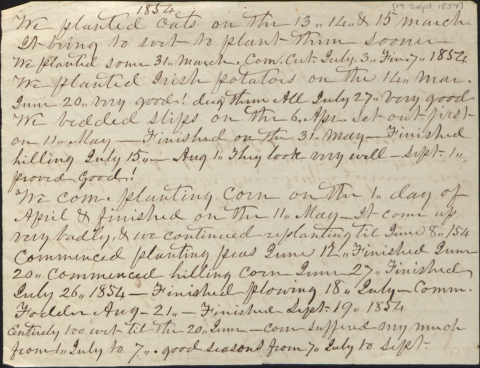 1854
[19 Sept 1854]
We planted Oats on the 13,, 14,, & 15 march
It being to wet to plant them sooner
We planted some 31,, March, Com. Cut. July. 3,, Fin. 7,, 1854
We planted Irish potatoes on the 14,, Mar.
June 20,, very good! dug them All July 27,, very good
We bedded slips on the 6,, Apr. set out first
on 11,, May — Finished on the 31,, May — Finished
hilling July 15,, — Aug 1,, They look very well — Sept. 1,,
proved Good!
We com. planting corn on the 1,, day of
April & finished on the 11,, May — It come up
very badly, & we continued replanting til June 8,, 154
Commenced planting peas June 12,, Finished June
20,, commenced hilling corn June 27,, Finished
July 26,, 1854 — Finished plowing 18,, July — Comm.
Fodder Aug — 21,, — Finished Sept. 19,, 1854
Entirely too wet til the 20,, June — corn suffered very much
from 1,, July to 7,,. good seasons from 7,, July to Sept.